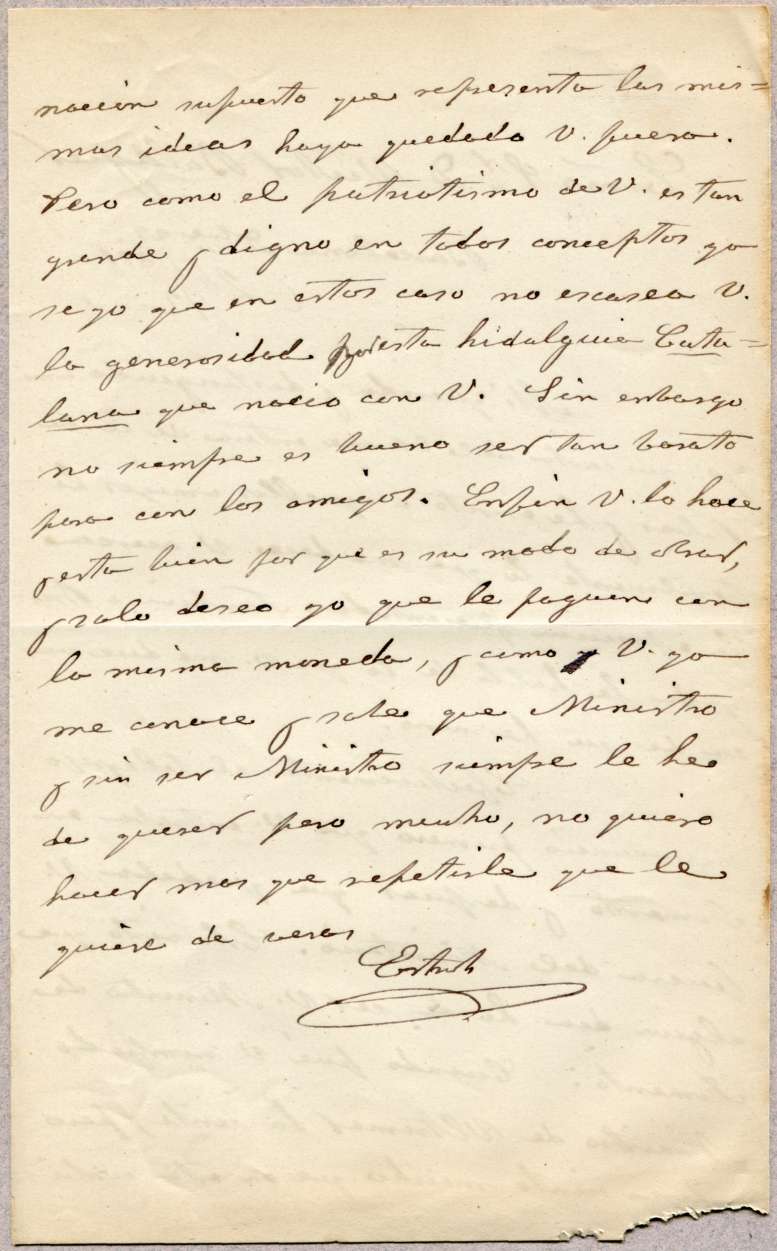 nacion supuesto que representa las mis=
mas ideas haya quedado V. fuera.
Pero como el patriotismo de V. es tan
grande y digno en todos conceptos ya
se yo que en estos caso no escasea V.
la generosidad por esta hidalguia Cata=
lana que nacio con V. Sin enbargo
no siempre es bueno ser tan barato
para con los amigos. Enfin V. lo hace
y esta bien por que es su modo de obrar,
y solo deseo yo que le paguen con
la misma moneda, y como V. ya
me conoce y sabe que Ministro
y sin ser Ministro siempe le he
de querer pero mucho, no quiero
hacer mas que repetirle que le
quiere de veras
Estruch